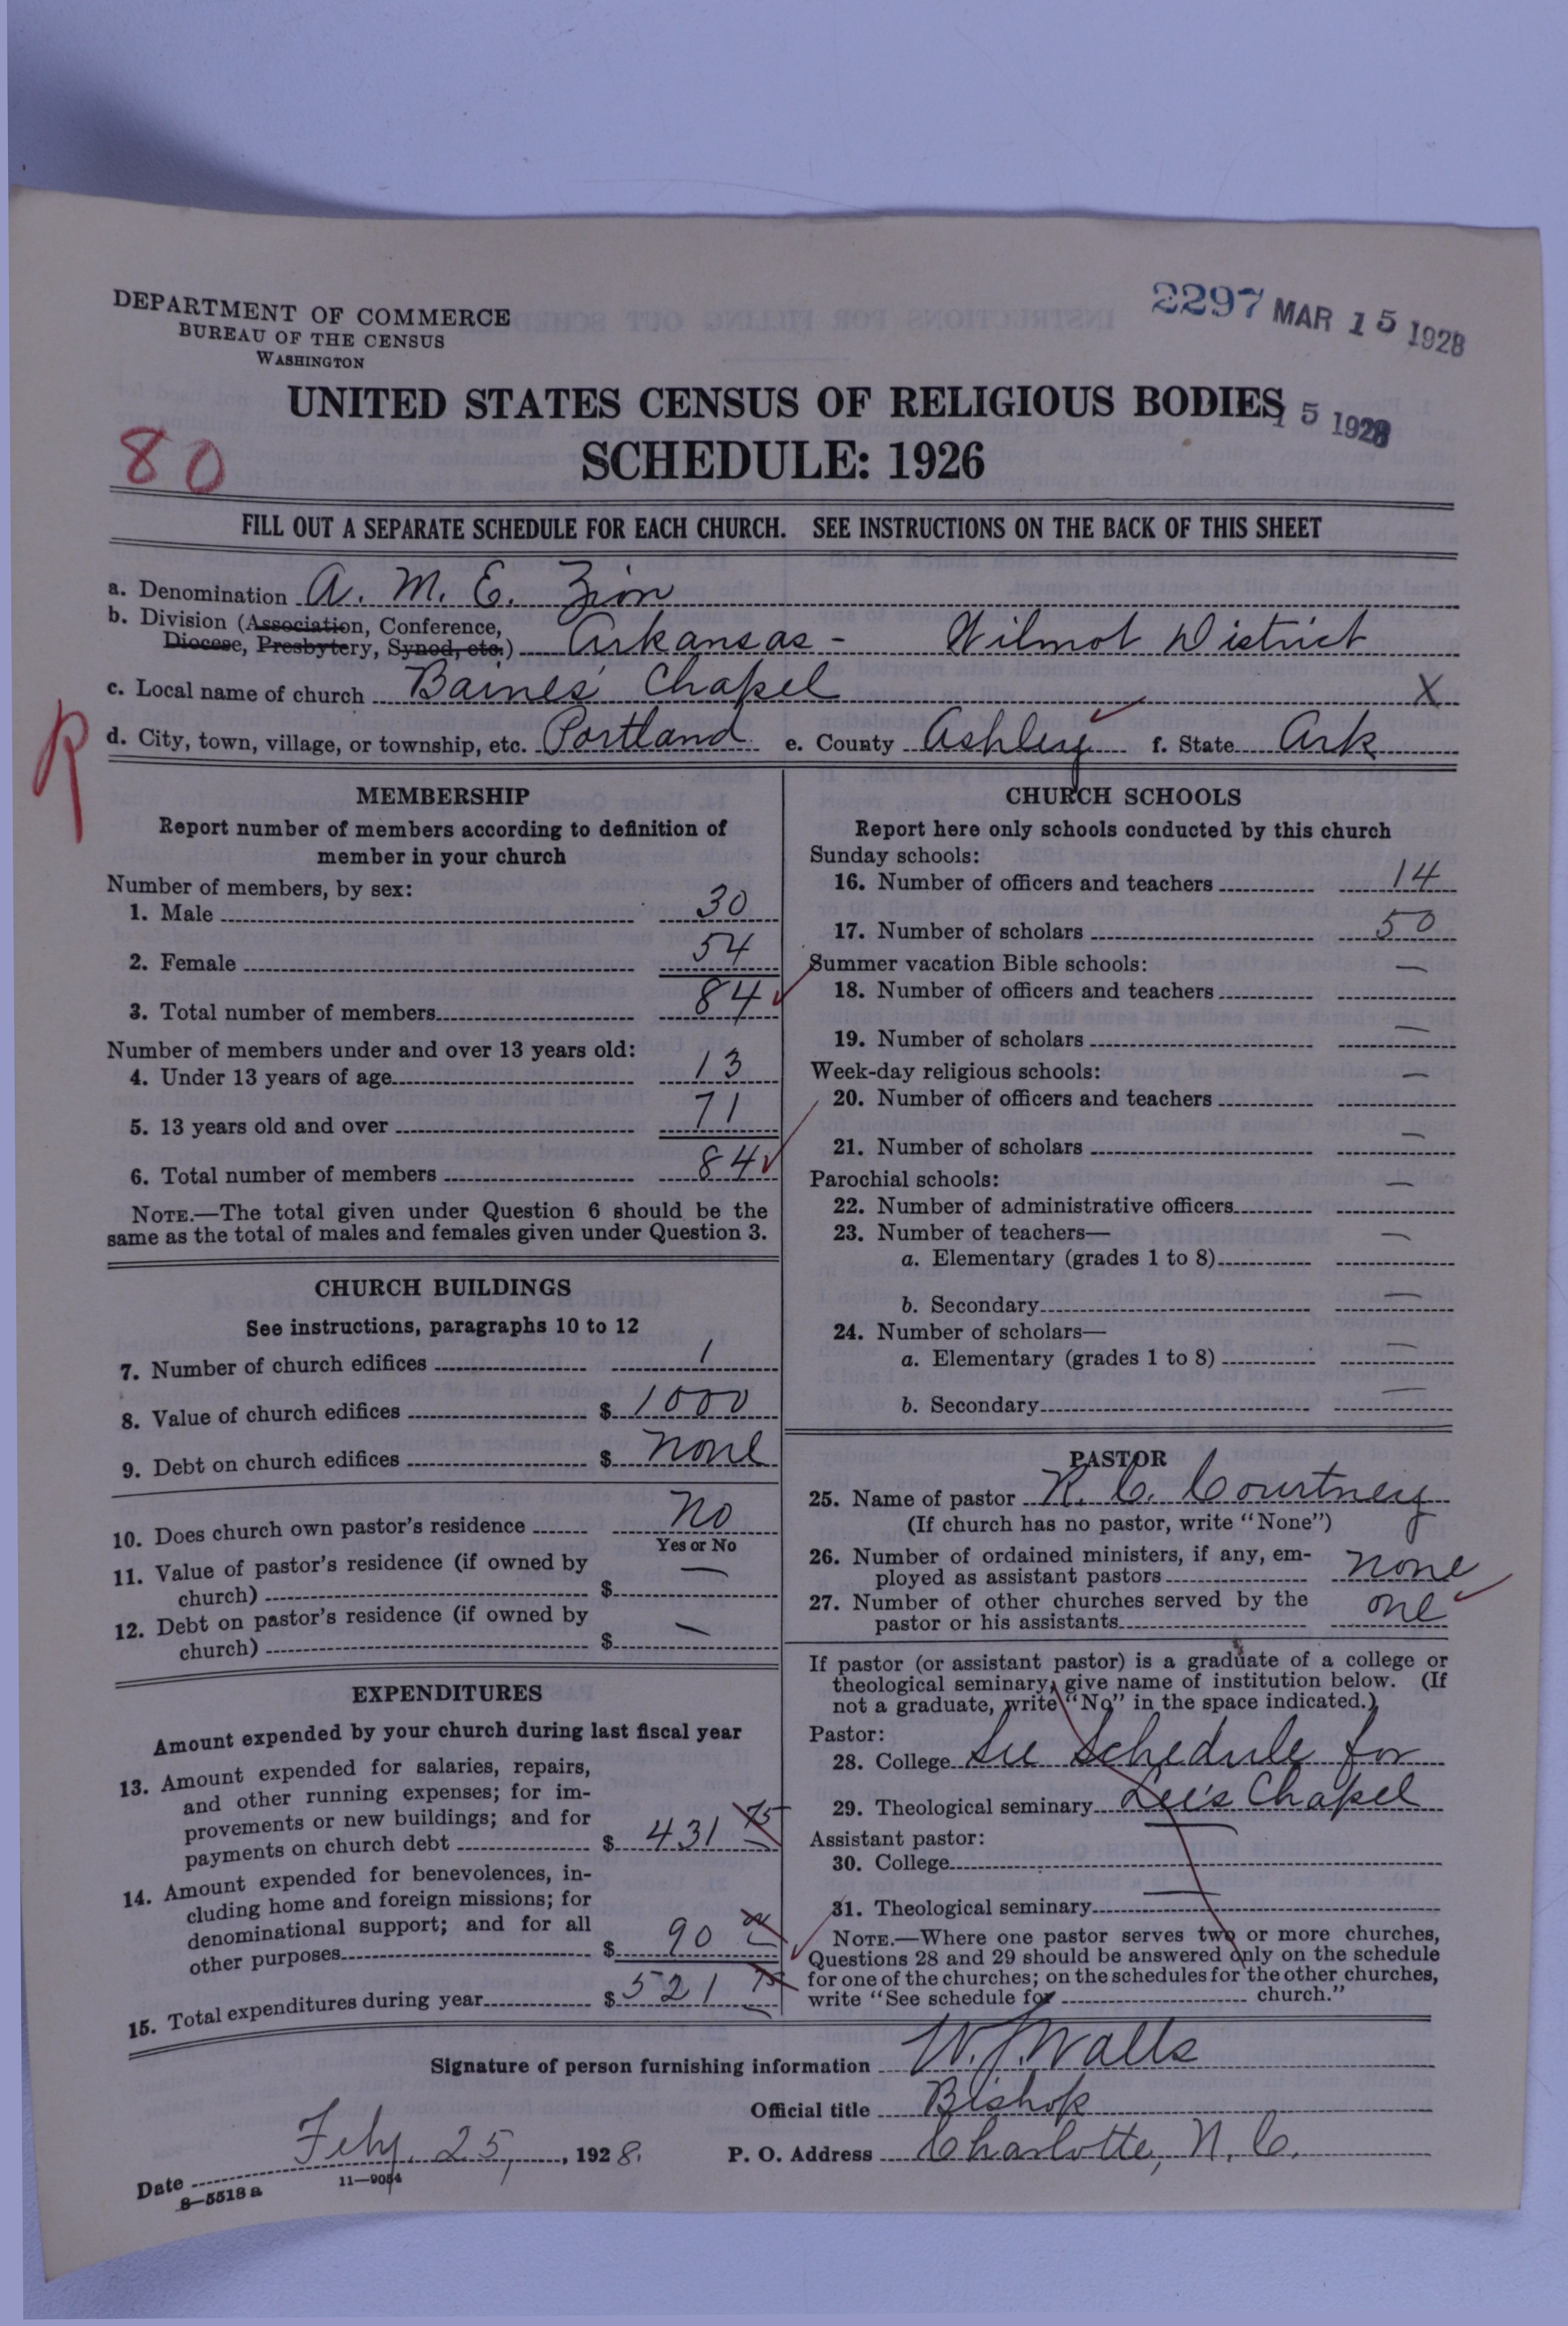 DEPARTMENT OF COMMERCE
BUREAU OF THE CENSUS
WASHINGTON
2297 MAR 15 1928
UNITED STATES CENSUS OF RELIGIOUS BODIES
15 1928
SCHEDULE: 1926
80
FILL OUT A SEPARATE SCHEDULE FOR EACH CHURCH. SEE INSTRUCTIONS ON THE BACK OF THIS SHEET
a. Denomination A. M. E. Zion
b. Division (Association, Conference,
Diocese, Presbytery, Synod, etc.) Arkansas - Wilmot District
c. Local name of church Baines' Chapel X
R
d. City, town, village, or township, etc. Portland e. County Ashley f. State Ark
MEMBERSHIP
Report number of members according to definition of
member in your church
Number of members, by sex:
1. Male 30
2. Female 54
3. Total number of members 84
Number of members under and over 13 years old:
4. Under 13 years of age 13
5. 13 years old and over 71
6. Total number of members 84
NOTE.—The total given under Question 6 should be the
same as the total of males and females given under Question 3.
CHURCH BUILDINGS
See instructions, paragraphs 10 to 12
7. Number of church edifices 1
8. Value of church edifices $ 1000
9. Debt on church edifices $ none
10. Does church own pastor's residence No
Yes or No
11. Value of pastor's residence (if owned by
church) $ —
12. Debt on pastor's residence (if owned by
church) $ —
EXPENDITURES
Amount expended by your church during last fiscal year
13. Amount expended for salaries, repairs,
and other running expenses; for im-
provements or new buildings; and for
payments on church debt $ 431 75
14. Amount expended for benevolences, in-
cluding home and foreign missions; for
denominational support; and for all
other purposes $ 90
15. Total expenditures during year $ 521 75
CHURCH SCHOOLS
Report here only schools conducted by this church
Sunday schools:
16. Number of officers and teachers 14
17. Number of scholars 50
Summer vacation Bible schools:
18. Number of officers and teachers —
19. Number of scholars —
Week-day religious schools:
20. Number of officers and teachers —
21. Number of scholars —
Parochial schools:
22. Number of administrative officers —
23. Number of teachers—
a. Elementary (grades 1 to 8) —
b. Secondary —
24. Number of scholars—
a. Elementary (grades 1 to 8) —
b. Secondary —
PASTOR
25. Name of pastor R. C. Courtney
(If church has no pastor, write "None")
26. Number of ordained ministers, if any, em-
ployed as assistant pastors none
27. Number of other churches served by the
pastor or his assistants one
If pastor (or assistant pastor) is a graduate of a college or
theological seminary, give name of institution below. (If
not a graduate, write "No" in the space indicated.)
Pastor:
28. College See Schedule for
29. Theological seminary Lee's Chapel
Assistant pastor:
30. College —
31. Theological seminary —
NOTE.—Where one pastor serves two or more churches,
Questions 28 and 29 should be answered only on the schedule
for one of the churches; on the schedules for the other churches,
write "See schedule for church."
Signature of person furnishing information W. J. Walls
Official title Bishop
Date Feby. 25, , 1928. P. O. Address Charlotte, N. C.
8—5518 a 11—9054